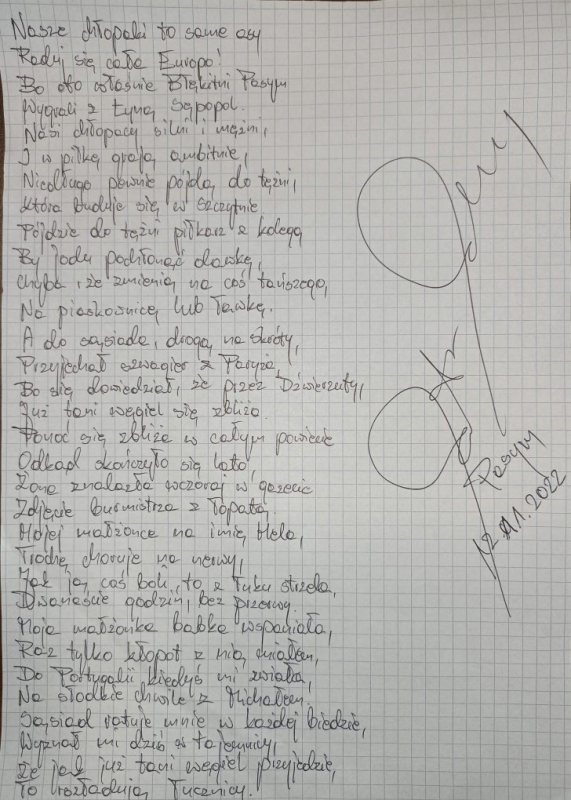 Nasze chłopaki to same asy
Raduj się cała Europo!
Bo oto właśnie Błękitni Pasym
Wygrali z Łyną Sępopol.
Nasi chłopacy silni i mężni,
I w piłkę grają ambitnie,
Niedługo pewnie pójdą do tężni,
Która buduje się w Szczytnie
Pójdzie do tężni piłkarz z kolegą
By jodu podchłonąć dawkę,
Chyba, że zmienią na coś tańszego,
Na piaskownicę lub ławkę.
A do sąsiada, drogą na skróty,
Przyjechał szwagier z Paryża,
Bo się dowiedział, że przez Dźwierzuty,
Już tani węgiel się zbliża.
Ponoć się zbliża w całym powiecie
Odkąd skończyło się lato,
Żona znalazła wczoraj w gazecie
Zdjęcie burmistrza z łopatą.
Mojej małżonce na imię Hela,
Trochę choruje na nerwy,
Jak ją coś boli, to z łuku strzela,
Dwanaście godzin, bez przerwy.
Moja małżonka babka wspaniała,
Raz tylko kłopot z nią miałem,
Do Portugalii kiedyś mi zwiała,
Na słodkie chwile z Michałem.
Sąsiad ratuje mnie w każdej biedzie,
Wyznał mi dziś w tajemnicy,
Że jak już tani węgiel przyjedzie,
To rozładują łucznicy.
Pasym
12.11.2022